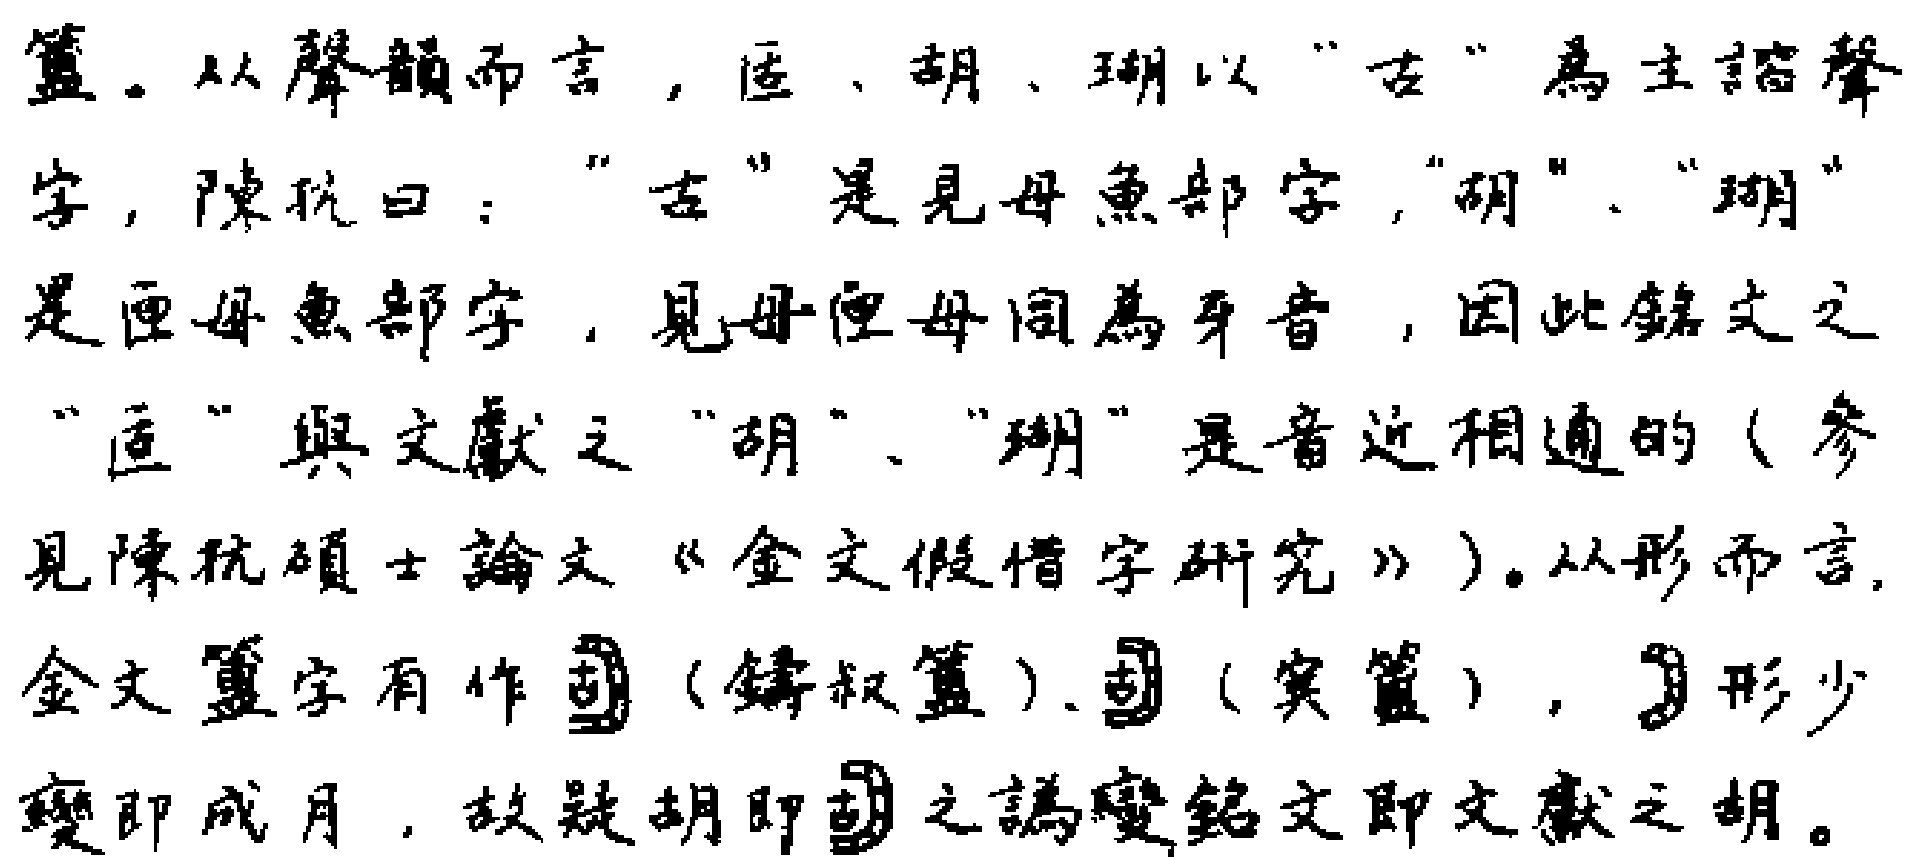 簠。从聲韻而言，匤、胡、瑚以“古”為主諧聲
字，陳抗曰：“古”是見母魚部字，“胡”、“瑚”
是匣母魚部字，見母匣母同為牙音，因此銘文之
“匤”與文獻之“胡”、“瑚”是音近相通的（參
見陳抗碩士論文《金文假借字研究》）。从形而言，
金文簠字有作（鑄叔簠）、（㝨簠），形少
變即成月，故疑胡即之譌變銘文即文獻之胡。